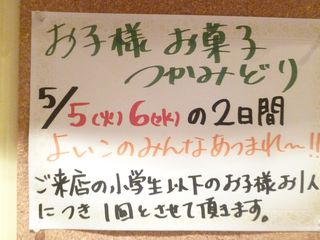 お子様 お菓子
つかみどり
5/5(火)6(水)の2日間
よいこのみんなあつまれ〜!!
ご来店の小学生以下のお子様お1人
につき1回とさせて頂きます。